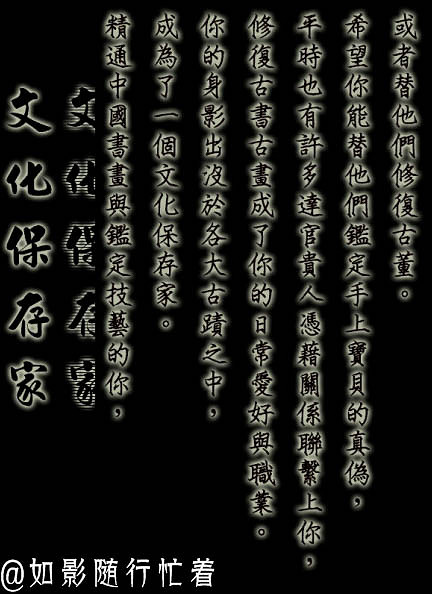 文化保存家
文化保存家
精通中國書畫與鑑定技藝的你，
成為了一個文化保存家。
你的身影出沒於各大古蹟之中，
修復古書古畫成了你的日常愛好與職業。
平時也有許多達官貴人憑藉關係聯繫上你，
希望你能替他們鑑定手上寶貝的真偽，
或者替他們修復古董。
@如影随行忙着